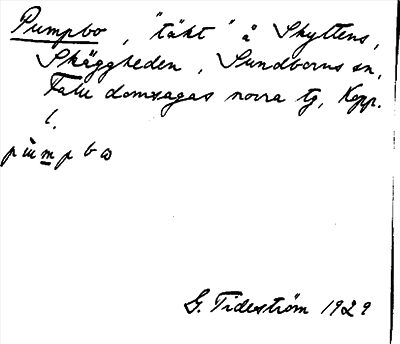 Pumpbo, "täkt" å Skyttens,
Skäggheden, Sundborns sn,
Falu domsagas norra tg, Kopp.
l.
pùmpbω
G. Tideström 1929